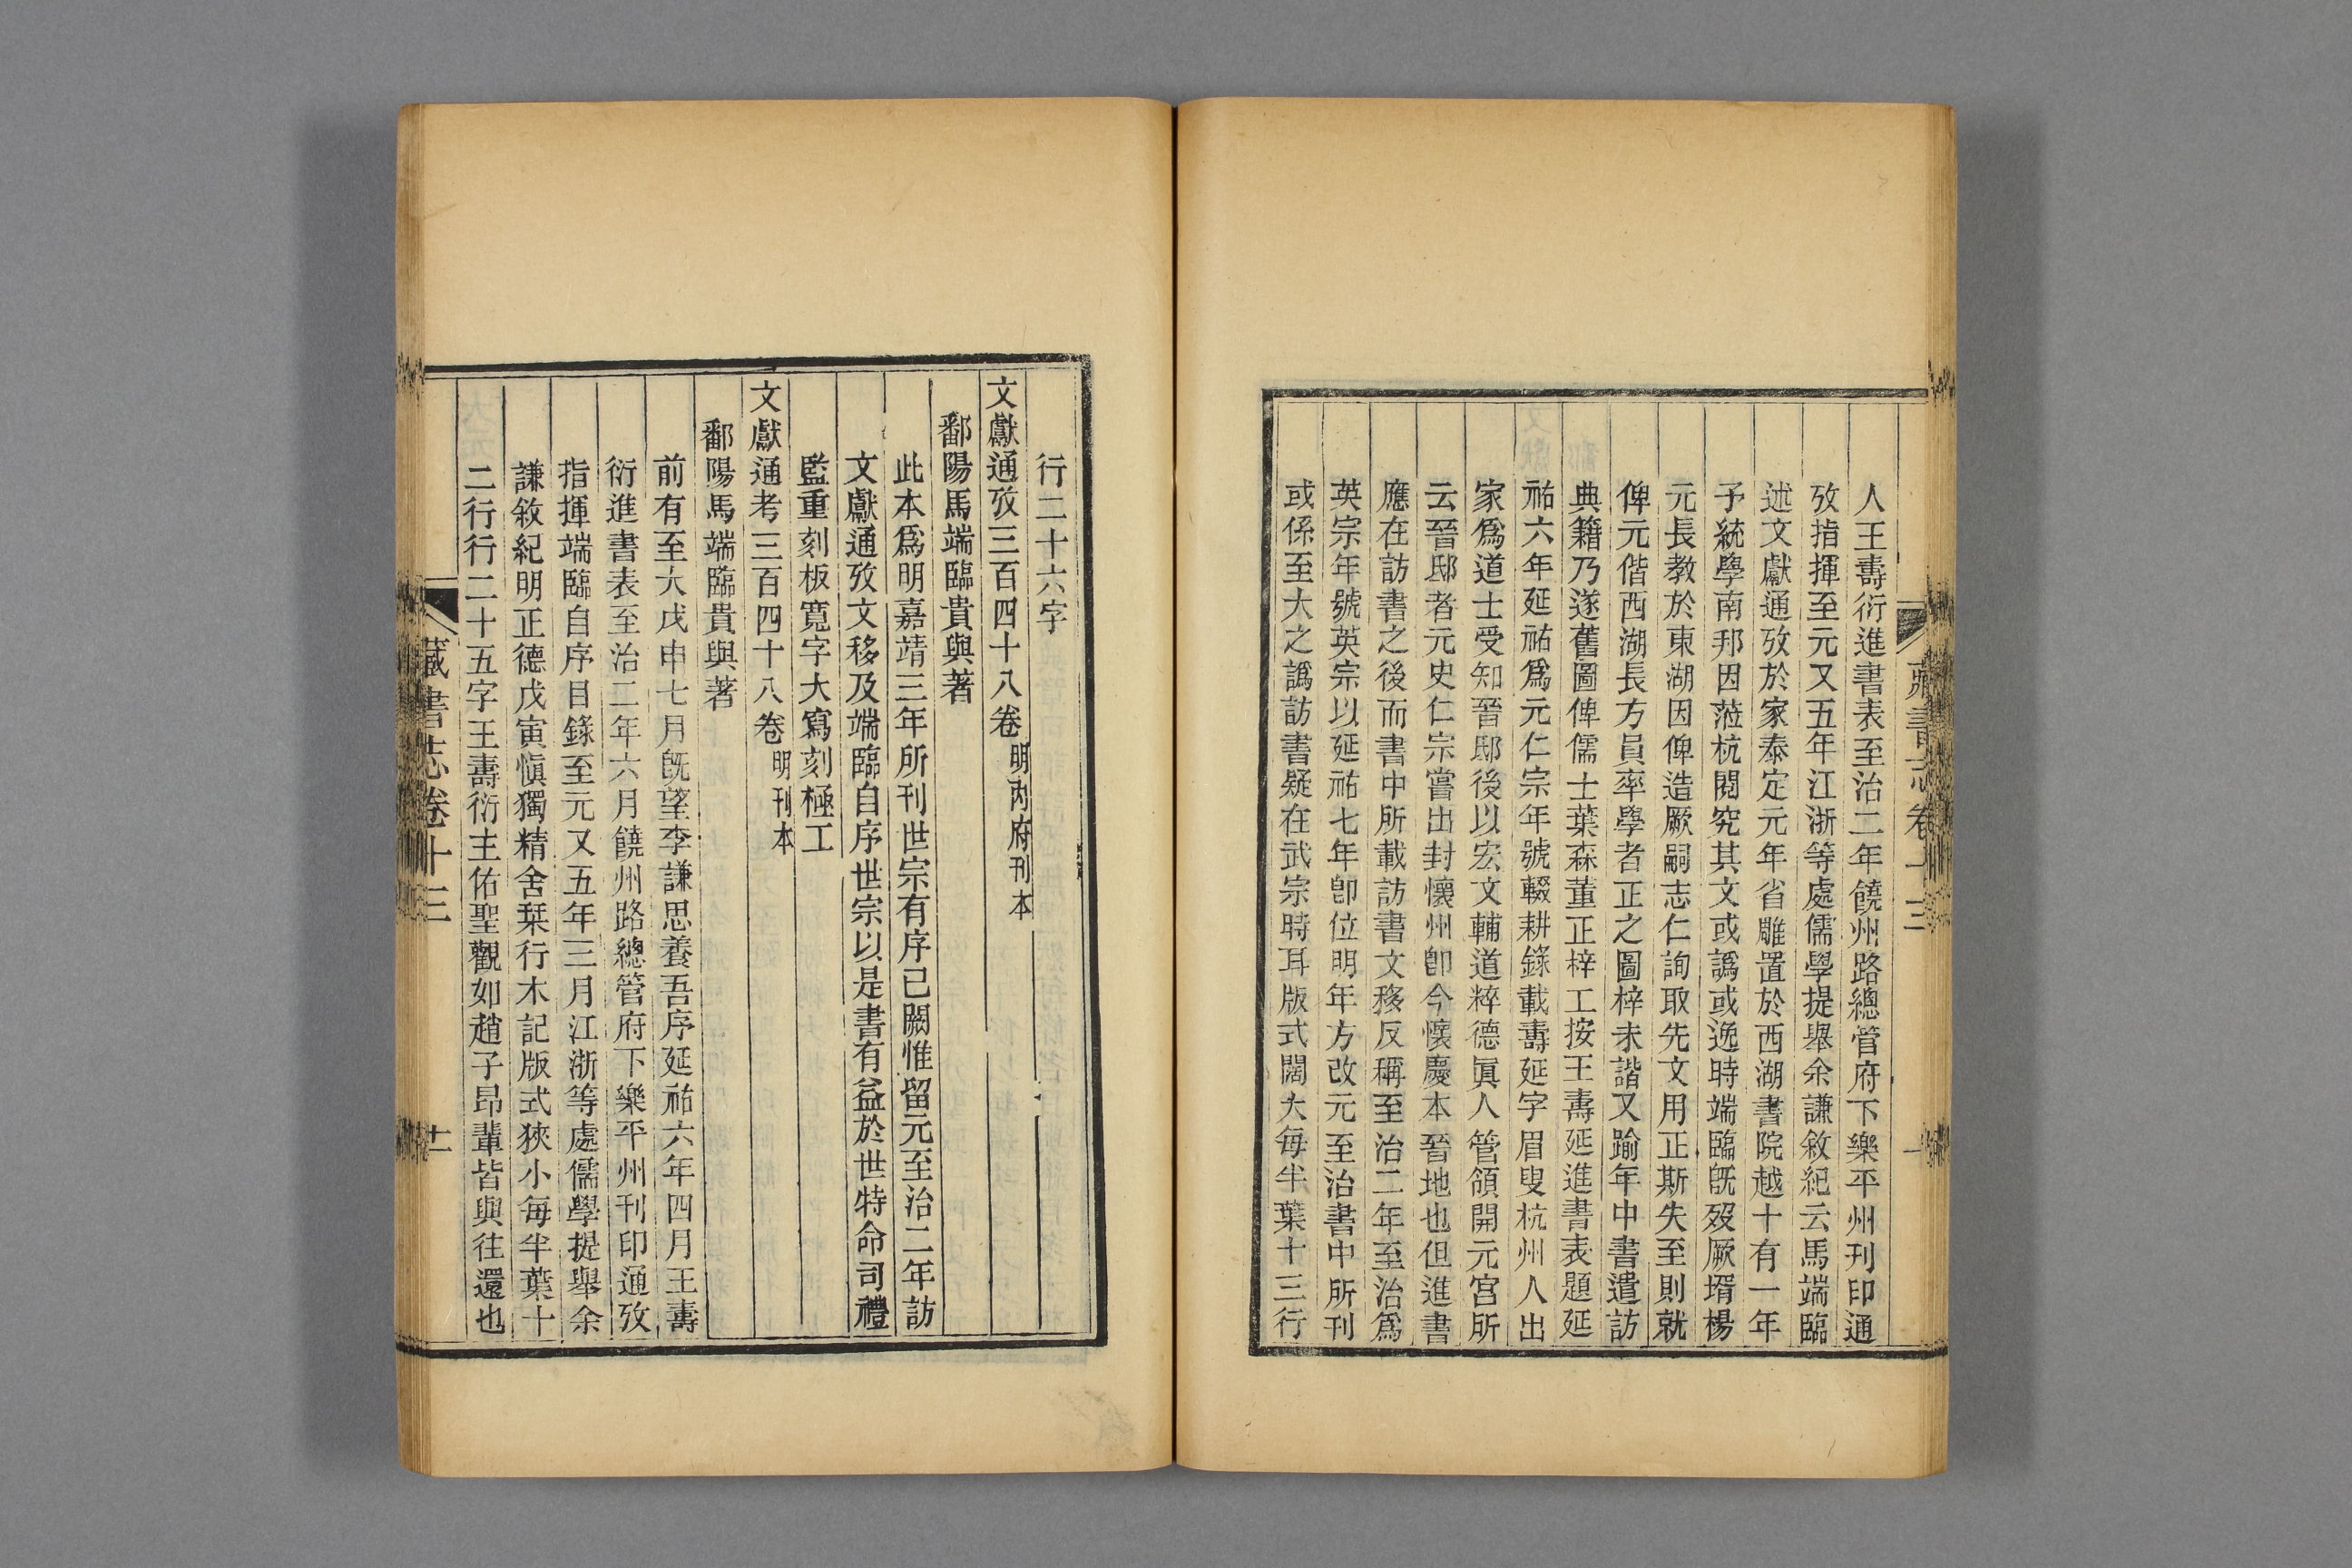 藏書志卷十三
人王壽衍進書表至治二年饒州路總管府下樂平州刊印通
攷指揮至元又五年江浙等處儒學提舉余謙敘紀云馬端臨
述文獻通攷於家泰定元年省雕置於西湖書院越十有一年
予統學南邦因蒞杭閱究其文或譌或逸時端臨旣歿厥壻楊
元長教於東湖因俾造厥嗣志仁詢取先文用正斯失至則就
俾元偕西湖長方員率學者正之圖梓未諧又踰年中書遣訪
典籍乃遂舊圖俾儒士葉森董正梓工按王壽延進書表題延
祐六年延祐爲元仁宗年號輟耕錄載壽延字眉叟杭州人出
家爲道士受知晉邸後以宏文輔道粹德眞人管領開元宮所
云晉邸者元史仁宗嘗出封懷州卽今懷慶本晉地也但進書
應在訪書之後而書中所載訪書文移反稱至治二年至治爲
英宗年號英宗以延祐七年卽位明年方改元至治書中所刊
或係至大之譌訪書疑在武宗時耳版式闊大每半葉十三行
行二十六字
文獻通攷三百四十八卷明內府刊本
鄱陽馬端臨貴與著
此本爲明嘉靖三年所刊世宗有序已闕惟留元至治二年訪
文獻通攷文移及端臨自序世宗以是書有益於世特命司禮
監重刻板寬字大寫刻極工
文獻通考三百四十八卷明刊本
鄱陽馬端臨貴與著
前有至大戊申七月旣望李謙思養吾序延祐六年四月王壽
衍進書表至治二年六月饒州路總管府下樂平州刊印通攷
指揮端臨自序目錄至元又五年三月江浙等處儒學提舉余
謙敘紀明正德戊寅愼獨精舍栞行木記版式狹小每半葉十
二行行二十五字王壽衍主佑聖觀如趙子昂輩皆與往還也
藏書志卷十三
十一